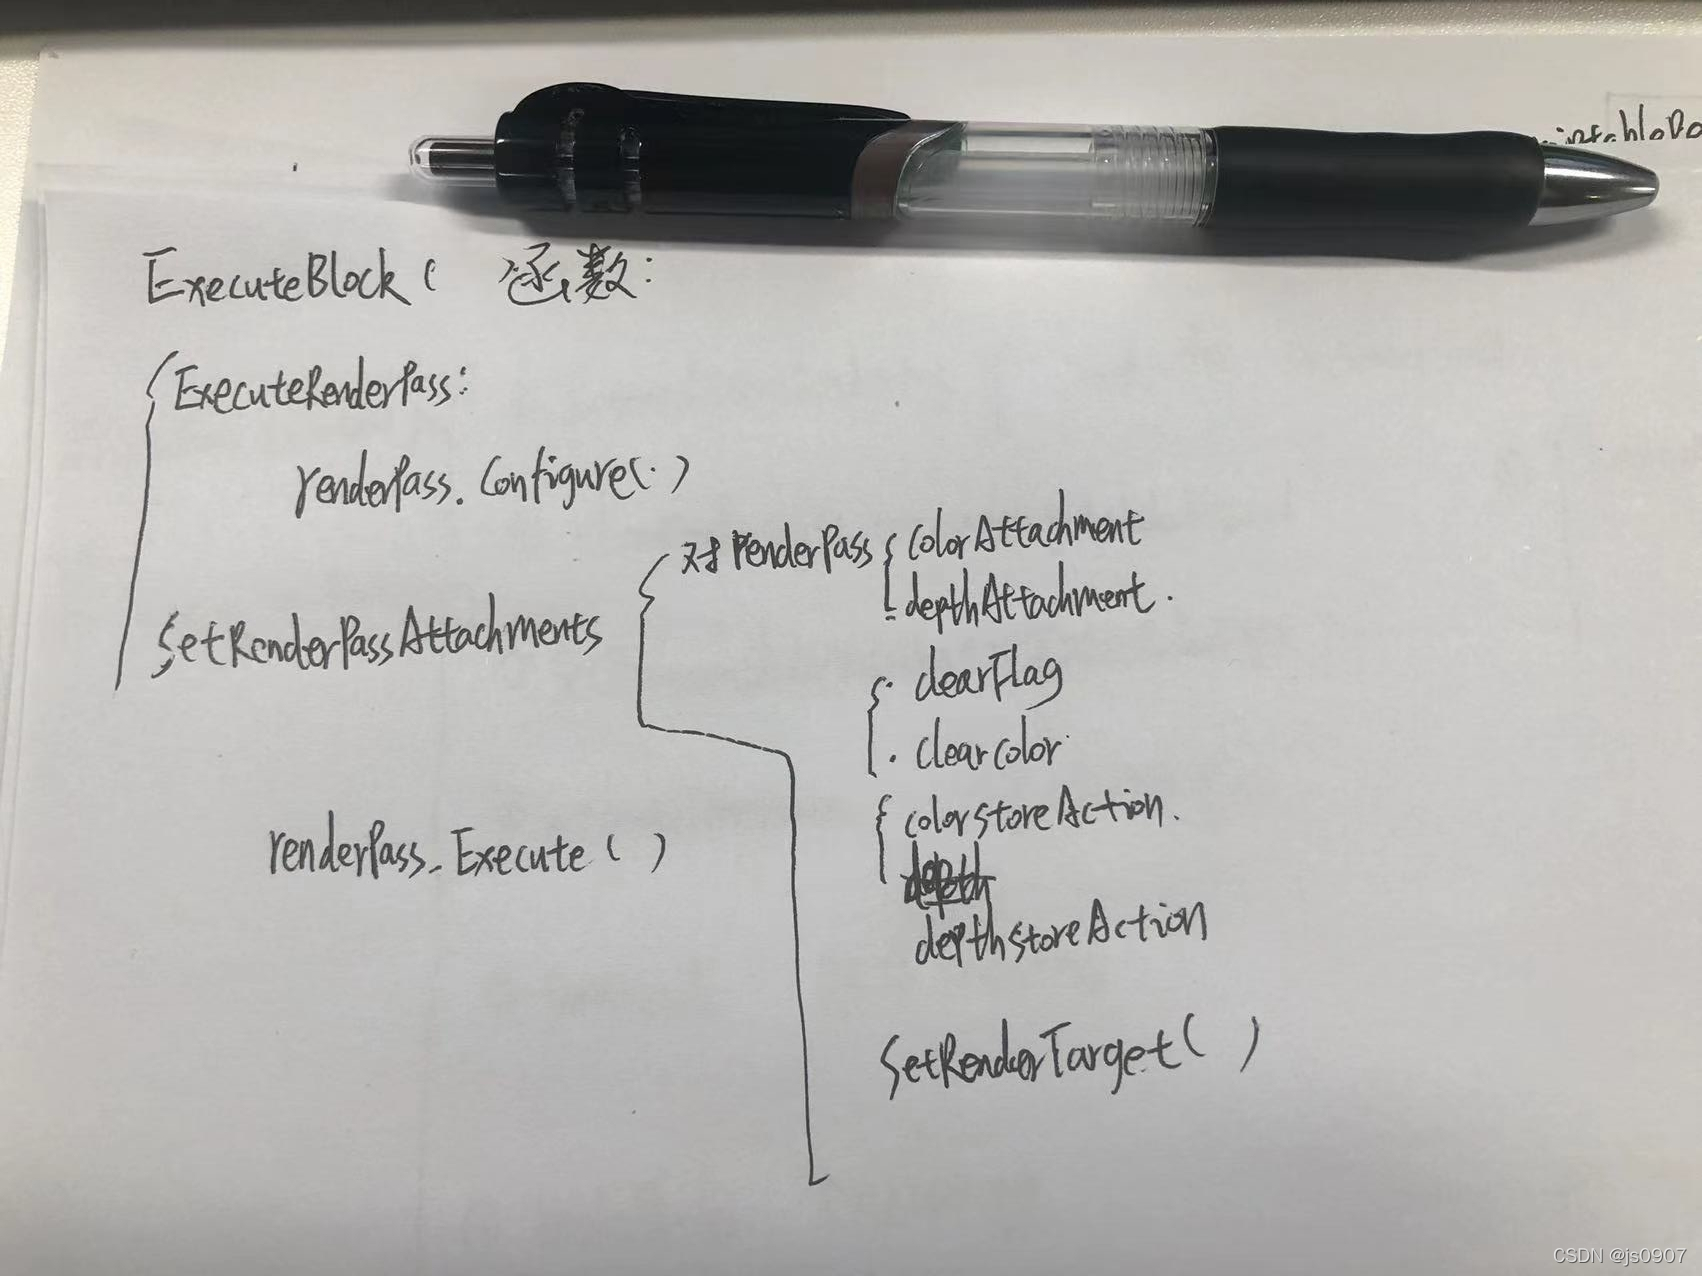 ExecuteBlock( 函数:
ExecuteRenderPass:
renderPass.Configure(.)
SetRenderPassAttachments
对renderPass
colorAttachment
depthAttachment.
· clearFlag
· clearcolor
colorstoreAction.
depthstoreAction
SetRenderTarget( )
renderPass.Execute( )
CSDN @js0907